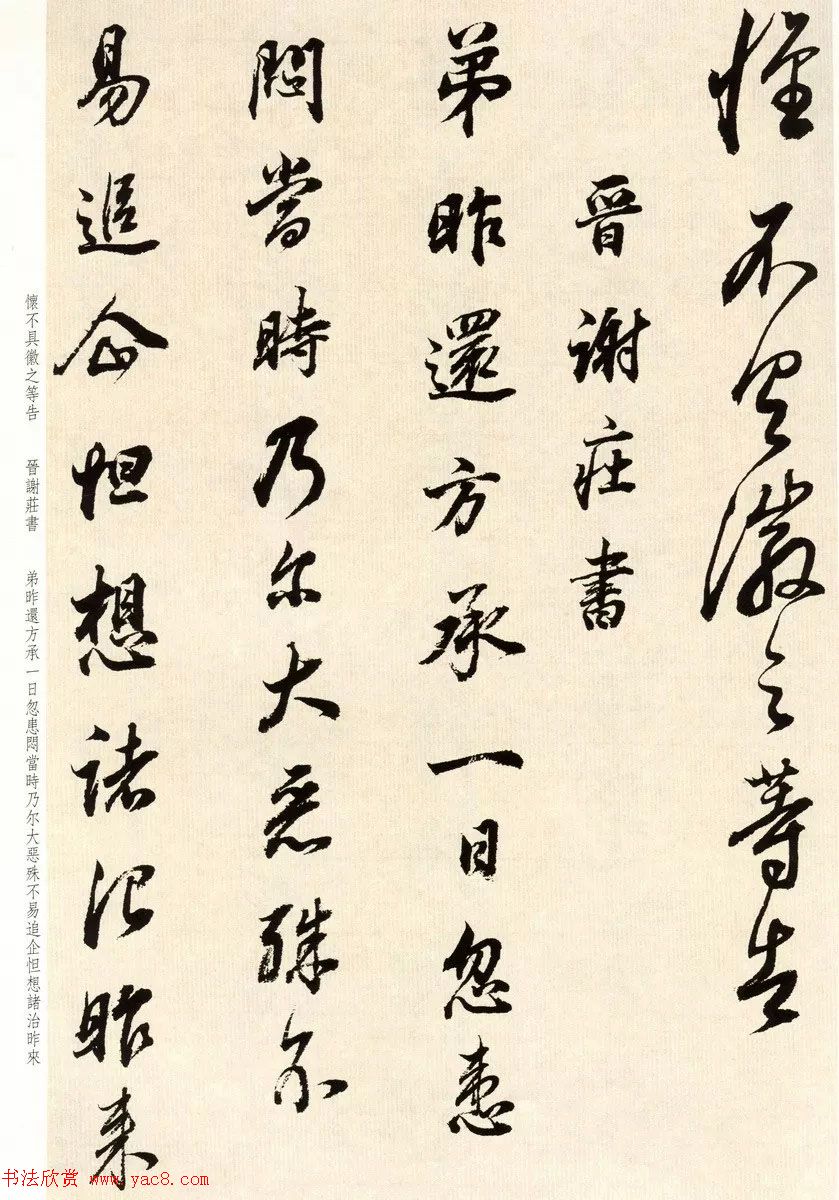 懷不具徽之等告
晉謝莊書
弟昨還方承一日忽患
悶當時乃尔大惡殊不
易追企怛想諸治昨來
懷不具徽之等告 晉謝莊書 弟昨還方承一日忽患悶當時乃尔大惡殊不易追企怛想諸治昨來
书法欣赏 www.yac8.com